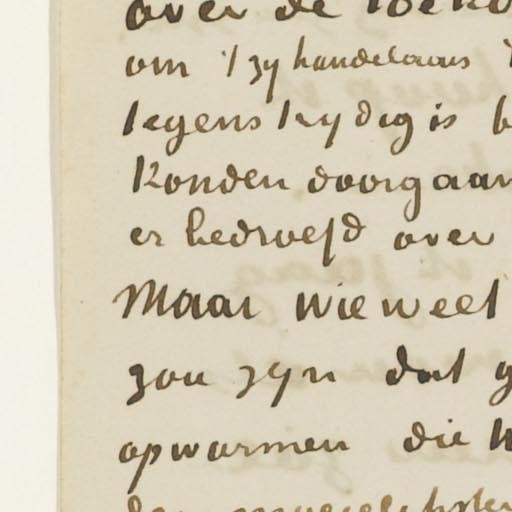 over de toeko
om 't zy handelaars
tegenstrydig is b
konden doorgaan
er bedroefd over
Maar wie weet
zou zyn dat g
opwarmen die